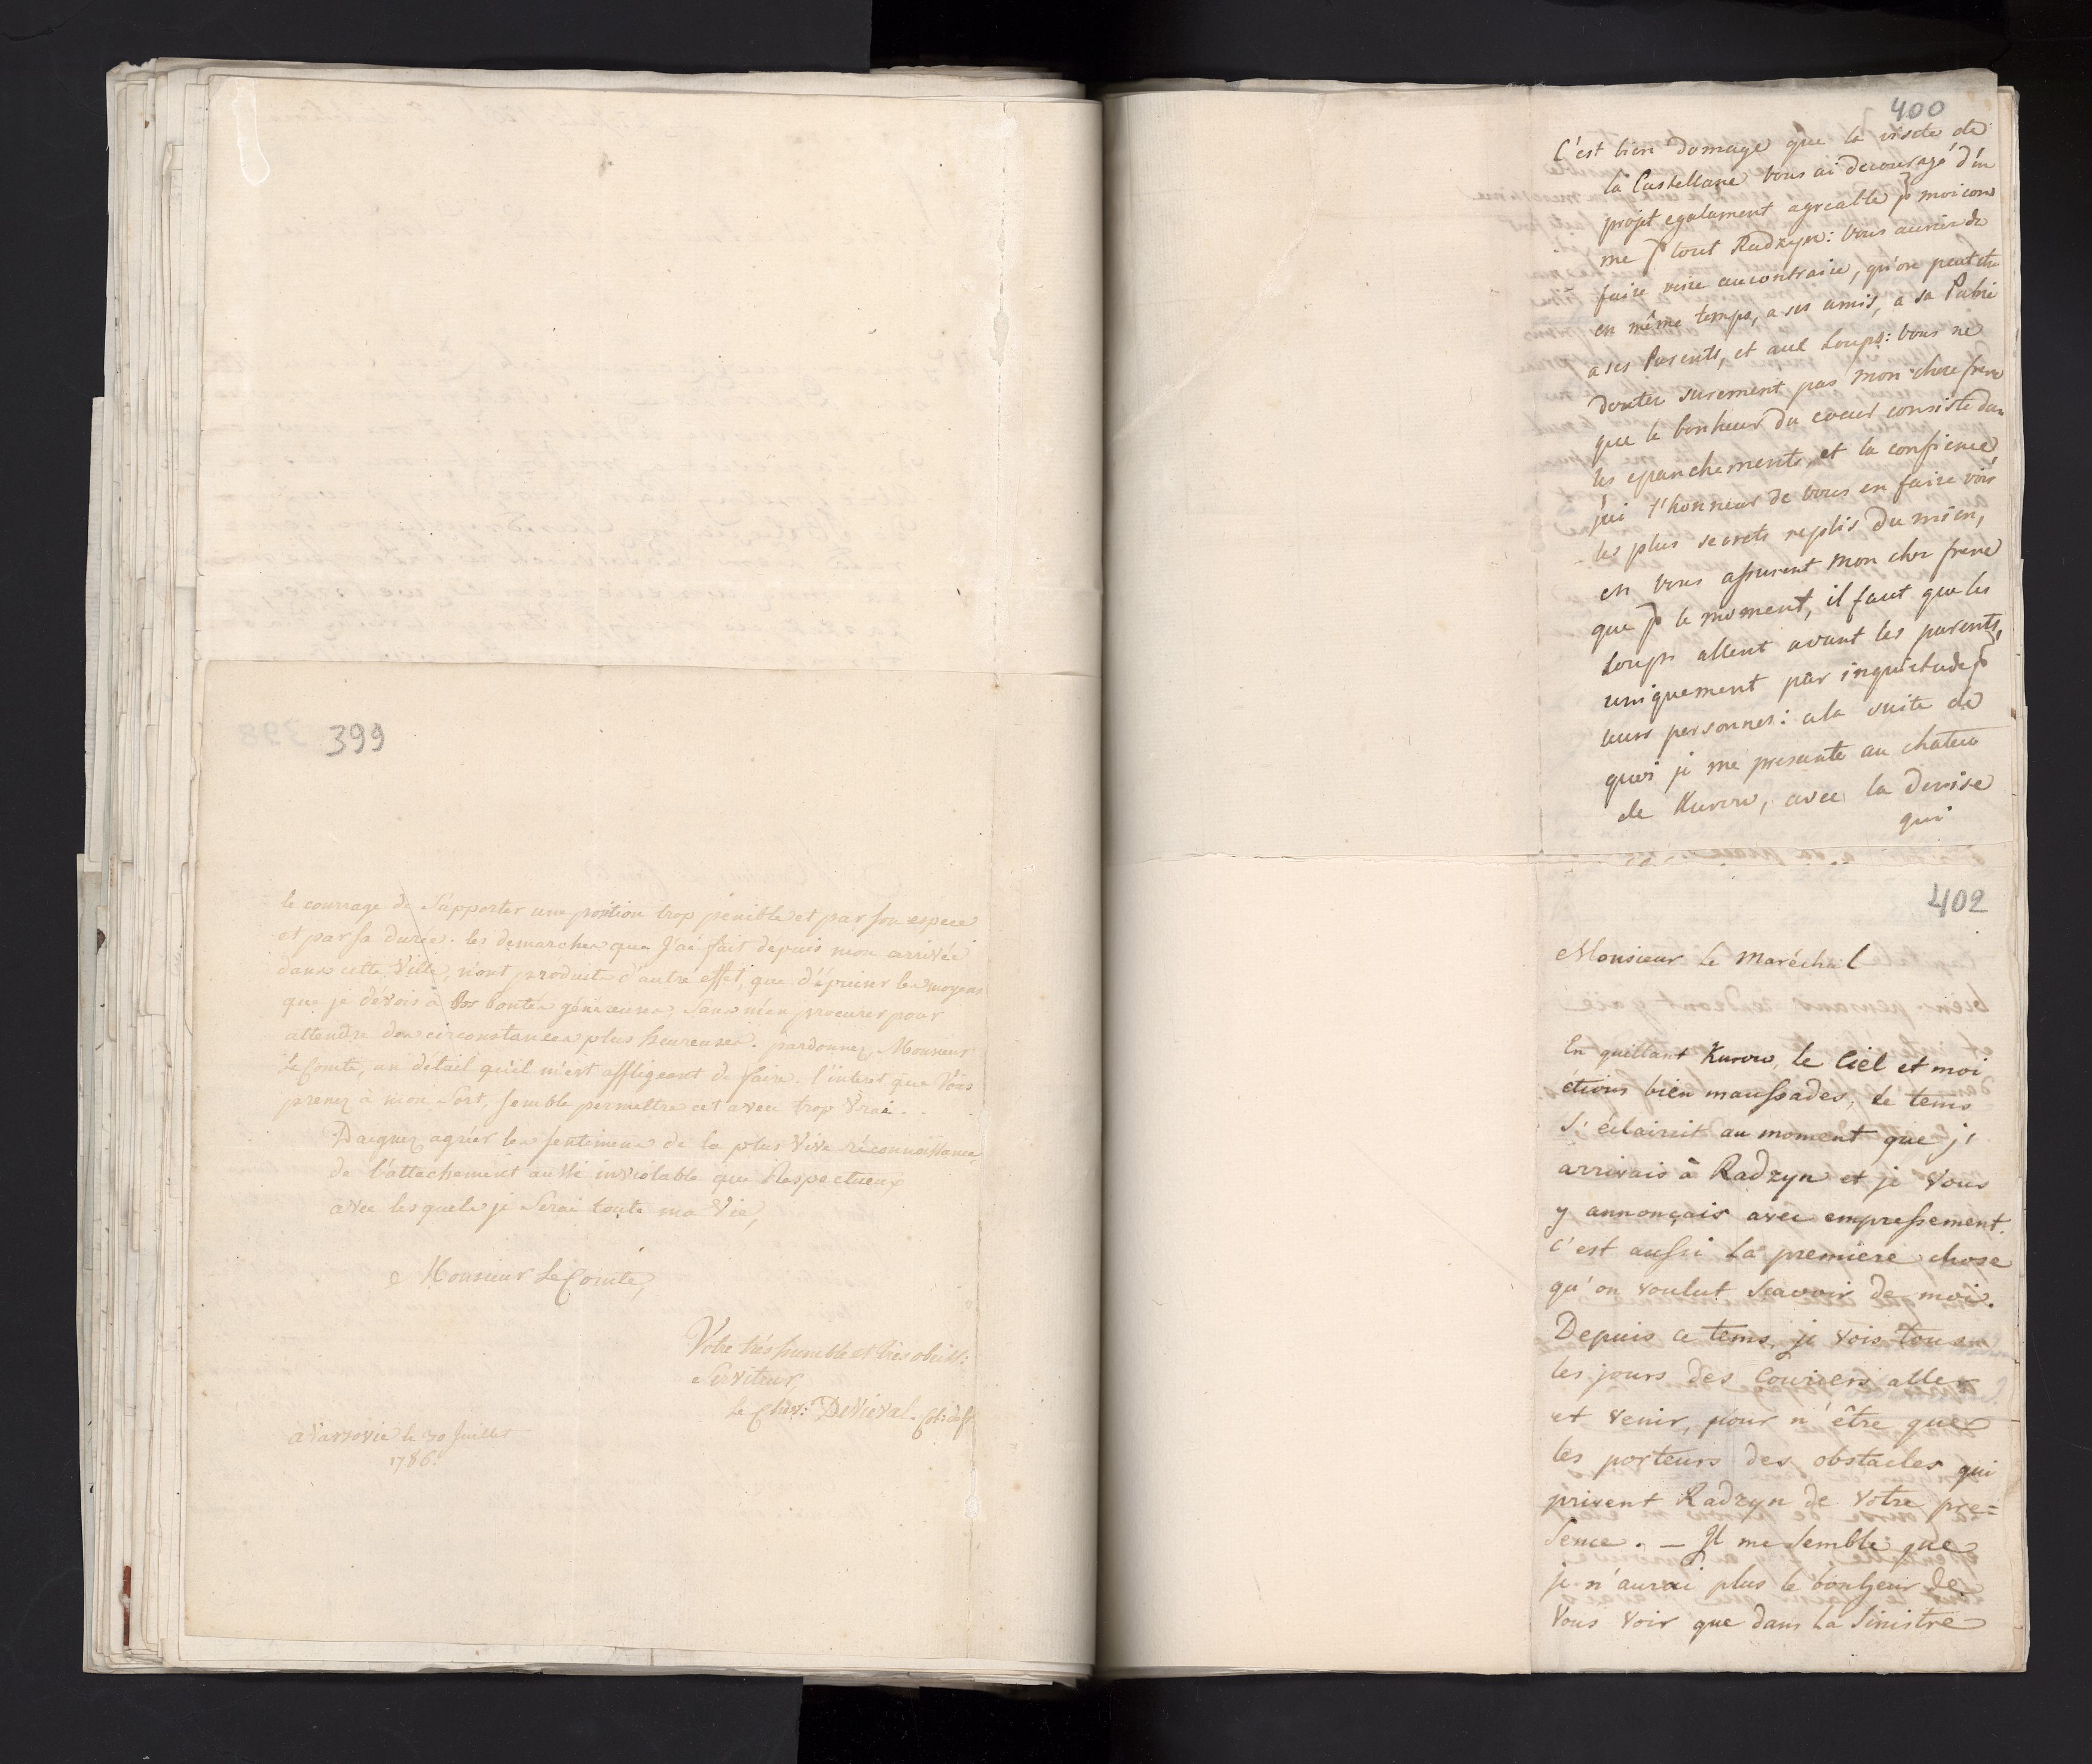 399
le courrage de Supporter une position trop penible et par son espece
et par sa durée. les demarches que J'ai fait depuis mon arrivée
dans cette Ville, n'ont produit d'autre effet, que d'épuiser les moyens
que je dévois à Vos bontés généreuses, Sans m'en procurer pour
attendre des circonstances plus heureuses. pardonnez, Monsieur
Le Comte, un détail qu'il m'est affligeant de faire. l'interet que Vous
prenez à mon Sort, semble permettre cet aveu trop Vrai.
Daignez agréer les sentimens de la plus Vive réconnoissance,
de l'attachement aussi inviolable que Respectueux
avec lesquels je Serai toute ma Vie,
Monsieur Le Comte,
Votre très humble et très obéiss:
Serviteur
Le Chev:
a Varsovie le 30 Juillet
1786.
400
C'est bien domage que la visite de
la Castellane vous ai decouragé d'un
projet egalament agreable p moi com
me p tout Radzyn: vous auriez du
faire voire aucontraire, qu'on peut etre
en même temps, a ses amis, a sa Patrie
a ses Parents, et aux Loups: vous ne
douter surement pas mon chere frere
que le bonheur du coeur consiste dan
les epanchements, et la confience,
j'ai l'honneur de vous en faire voir
les plus secrets replis du mien,
en vous assurent mon cher frere
que p le moment, il faut que les
Loups allent avant les parents,
uniquement par inquietude p
leurs personnes: a la suite de
quoi je me presente au chateau
de Kurow, avec la devise
qui
402
Monsieur Le Maréchal
En quittant Kurow, le Ciel et moi
étions bien maussades, le tems
S'éclaircit au moment que j'
arrivais à Radzyn et je Vous
y annonçais avec empressement.
C'est aussi La première chose
qu'on voulut Scavoir de moi.
Depuis ce tems, je vois tous
les jours des Couriers aller
et venir, pour n'être que
les porteurs des obstacles qui
privent Radzyn de Votre pre=
sence. — Il me Semble que
je n'aurai plus le bonheur de
Vous Voir que dans La Sinistre